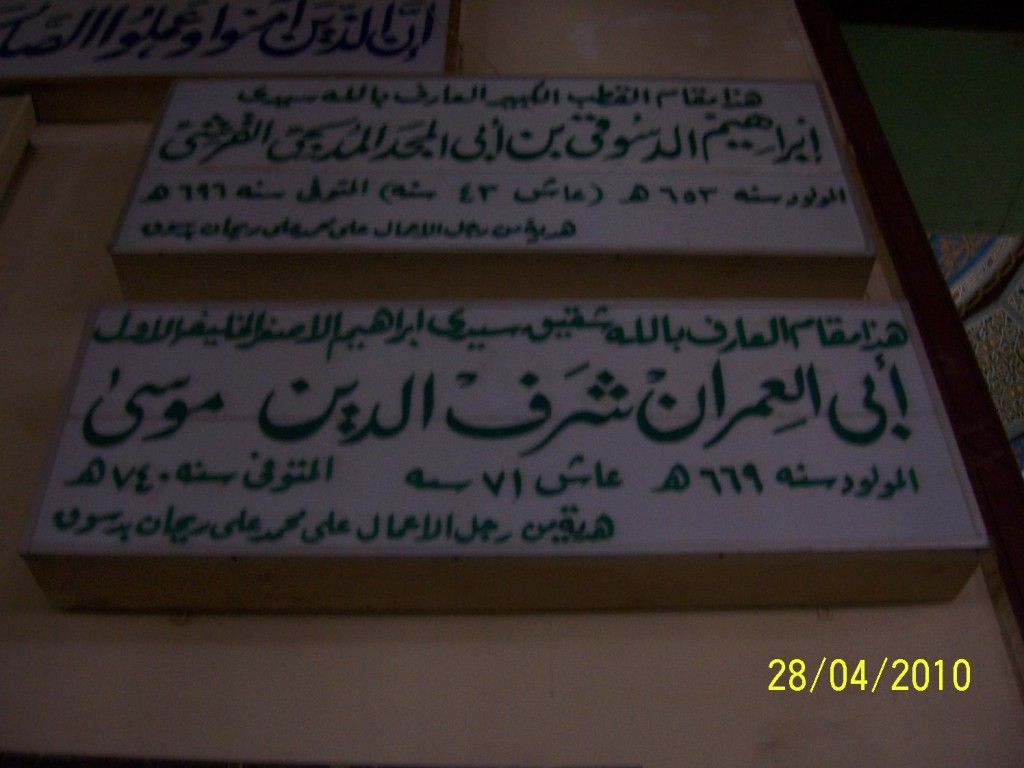 إن الذين آمنوا وعملوا الصا
هذا مقام القطب الكبير العارف بالله سيدى
إبراهيم الدسوقى بن أبى المجد القرشى
المولود سنه ٦٥٣ هـ (عاش ٤٣ سنه) المتوفى سنه ٦٩٦ هـ
هدية من رجل الاعمال على محمد على ريحان بدسوق
هذا مقام العارف بالله شقيق سيدى ابراهيم الاصغر الخليفه الاول
أبى العمران شرف الدين موسى
المولود سنه ٦٦٩ هـ عاش ٧١ سنه المتوفى سنه ٧٤٠ هـ
هدية من رجل الاعمال على محمد على ريحان بدسوق
28/04/2010